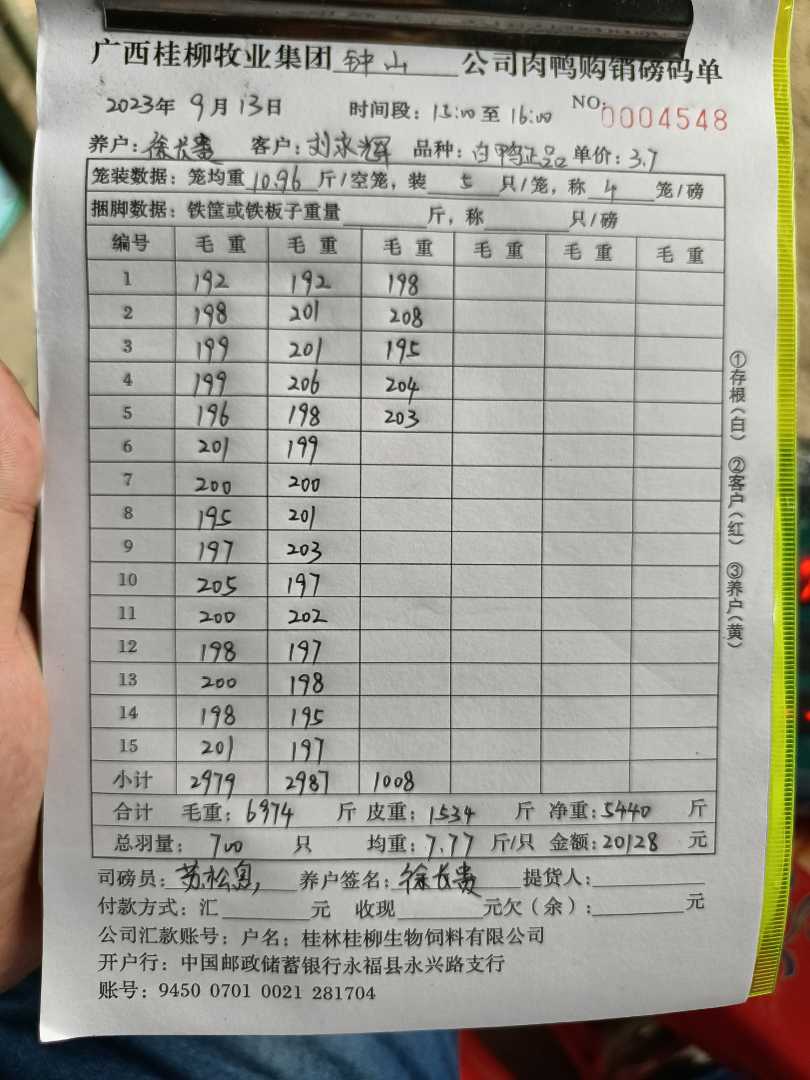 广西桂柳牧业集团钟山公司肉鸭购销磅码单
2023年9月13日 时间段:15:00至16:00 NO:0004548
养户:徐长贵 客户:刘永辉 品种:白鸭正品 单价:3.7
笼装数据:笼均重10.96斤/空笼,装5只/笼,称4笼/磅
捆脚数据:铁筐或铁板子重量 斤,称 只/磅
编号 毛重 毛重 毛重 毛重 毛重 毛重
1 192 192 198
2 198 201 208
3 199 201 195
4 199 206 204
5 196 198 203
6 201 199
7 200 200
8 195 201
9 197 203
10 205 197
11 200 202
12 198 197
13 200 198
14 198 195
15 201 197
小计 2979 2987 1008
合计 毛重:6974 斤 皮重:1534 斤 净重:5440 斤
总羽量:700 只 均重:7.77 斤/只 金额:20128 元
司磅员:苏松 养户签名:徐长贵 提货人:
付款方式:汇 元 收现 元欠(余): 元
公司汇款账号:户名:桂林桂柳生物饲料有限公司
开户行:中国邮政储蓄银行永福县永兴路支行
账号:9450 0701 0021 281704
①存根(白) ②客户(红) ③养户(黄)